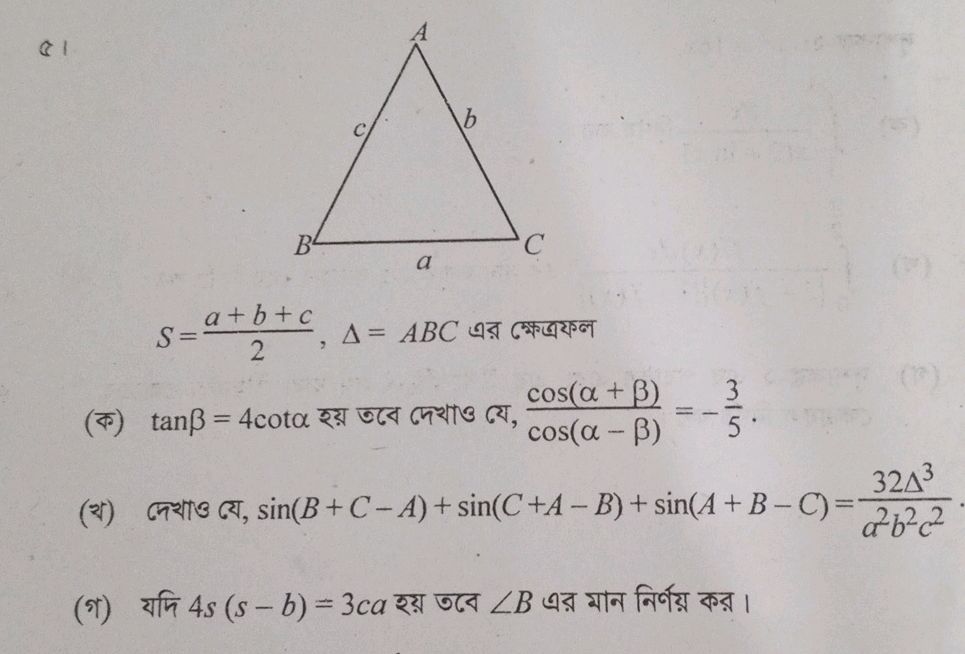 ৫।
A
c
b
B
C
a
S = (a + b + c)/2 , Δ = ABC এর ক্ষেত্রফল
(ক) tanβ = 4cotα হয় তবে দেখাও যে, cos(α + β)/cos(α − β) = −3/5 .
(খ) দেখাও যে, sin(B + C − A) + sin(C +A − B) + sin(A + B − C) = 32Δ³/a²b²c² .
(গ) যদি 4s (s − b) = 3ca হয় তবে ∠B এর মান নির্ণয় কর।